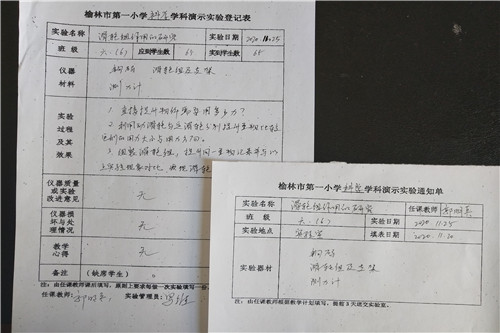 榆林市第一小学科学学科演示实验登记表
实验名称 滑轮组作用的研究 实验日期 2020.11.25
班 级 六.(6) 应到学生数 65 实到学生数 65
仪器
材料
钩码 滑轮组及支架
测力计
实验
过程
及其
效果
1.直接提升物体需要用多大力?
2.利用动滑轮与定滑轮分别提升重物比较
3.组装滑轮组,提升同一重物记录并与以
仪器质量
或实验
改进意见
无
仪器损
坏与处
理情况
无
教学
心得
无
备注 (缺席学生)
注:由任课教师课后填写,原则上要求每做一次实验填写一份。
任课教师: 实验管理员:
榆林市第一小学科学学科演示实验通知单
实验名称 滑轮组作用的研究 任课教师
班 级 六.(6) 实验日期 2020.11.25
实验地点 实验室 填表日期 2020.11.20
实验器材
钩码
滑轮组及支架
测力计
注:由任课教师根据教学计划填写,提前3天送交实验室。